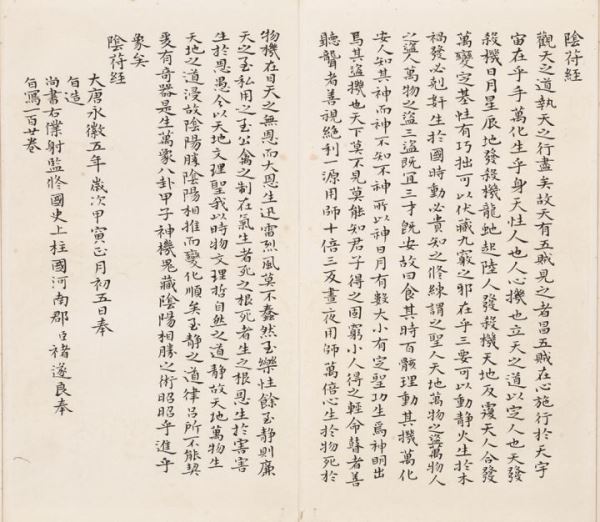 陰符経
觀天之道執天之行盡矣故天有五賊見之者昌五賊在心施行於天宇
宙在乎手万化生乎身天性人也人心機也立天之道以定人也天發
殺機日月星辰地發殺機龍虵起陸人發殺機天地反覆天人合發
萬變定基性有巧拙可以伏藏九竅之邪在乎三要可以動静火生於木
禍發必剋奸生於國時動必潰知之修練謂之聖人天地萬物之盜萬物人
之盜人萬物之盜三盜既宜三才既安故曰食其時百骸理動其機萬化
安人知其神而神不知不神所以神日月有數大小有定聖功生焉神明出
焉其盜機也天下莫不見莫能知君子得之固窮小人得之輕命瞽者善
聽聾者善視絶利一源用師十倍三反晝夜用師萬倍心生於物死於
物機在目天之無恩而大恩生迅雷烈風莫不蠢然至樂性餘至静則廉
天之至私用之至公禽之制在氣生者死之根死者生之根恩生於害害
生於恩愚人以天地文理聖我以時物文理哲自然之道静故天地萬物生
天地之道浸故陰陽勝陰陽相推而變化順矣至静之道律吕所不能契
爰有奇器是生萬象八卦甲子神機鬼藏陰陽相勝之術昭昭乎進乎
象矣
陰符経
大唐永徽五年歲次甲寅正月初五日奉
旨造
尚書右僕射監修國史上柱國河南郡臣褚遂良奉
旨寫一百廿卷